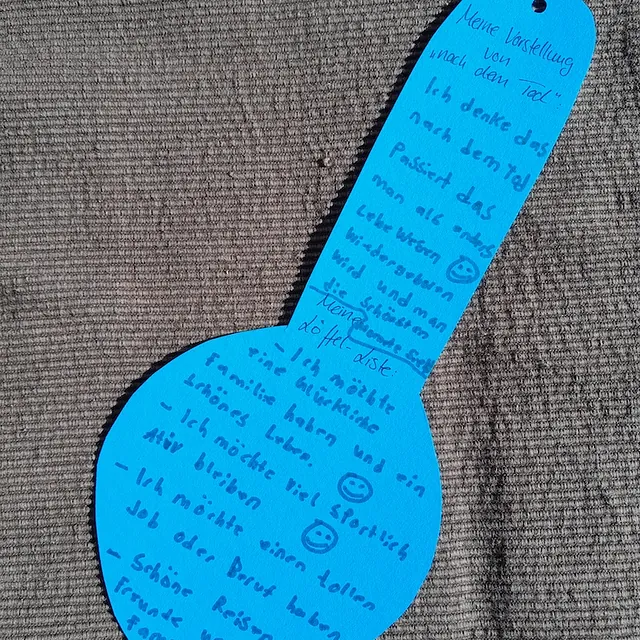 Meine Vorstellung
von
„nach dem Tod"
Ich denke das
nach dem Tod
Passiert das
man als anders
Lebewesen
wiedergeboren
wird und man
die schönsten
Meine
Löffel-Liste:
- Ich möchte
eine Glückliche
Familie haben und ein
schönes Leben.
- Ich möchte viel Sportlich
Ativ bleiben
- Ich möchte einen tollen
Job oder Beruf haben
- Schöne Reisen
Freunde